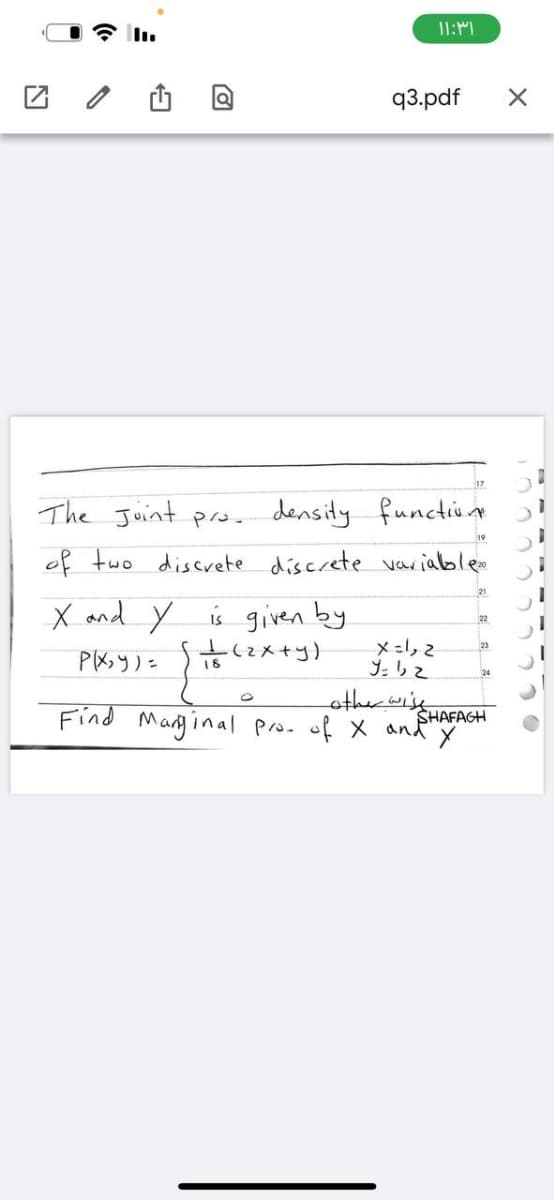 ١١:٣١
q3.pdf
17
The Joint pro. density function
19
of two discrete discrete variable
20
21
X and Y is given by
22
P(x,y) = { 1/18 (2x+y) x=1,2
23
y=1,2
24
0 otherwise
SHAFAGH
Find Marginal pro. of X and Y